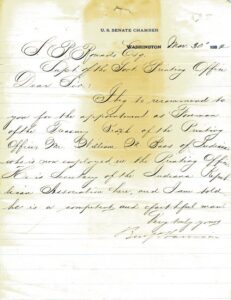 U. S. SENATE CHAMBER
WASHINGTON Mar 30" 188
S. P. Rounds Esq.
Supt of the Govt Printing Office
Dear Sir:
I beg to recommend to
you for the appointment as Foreman
of the Treasury Branch of the Printing
Office, Mr. William N. of Indiana
who is now employed in the Printing Office
He is Secretary of the Indiana Repub
lican Association here, and I am told
he is a competent and faithful man
Very truly yours
Benj Harrison